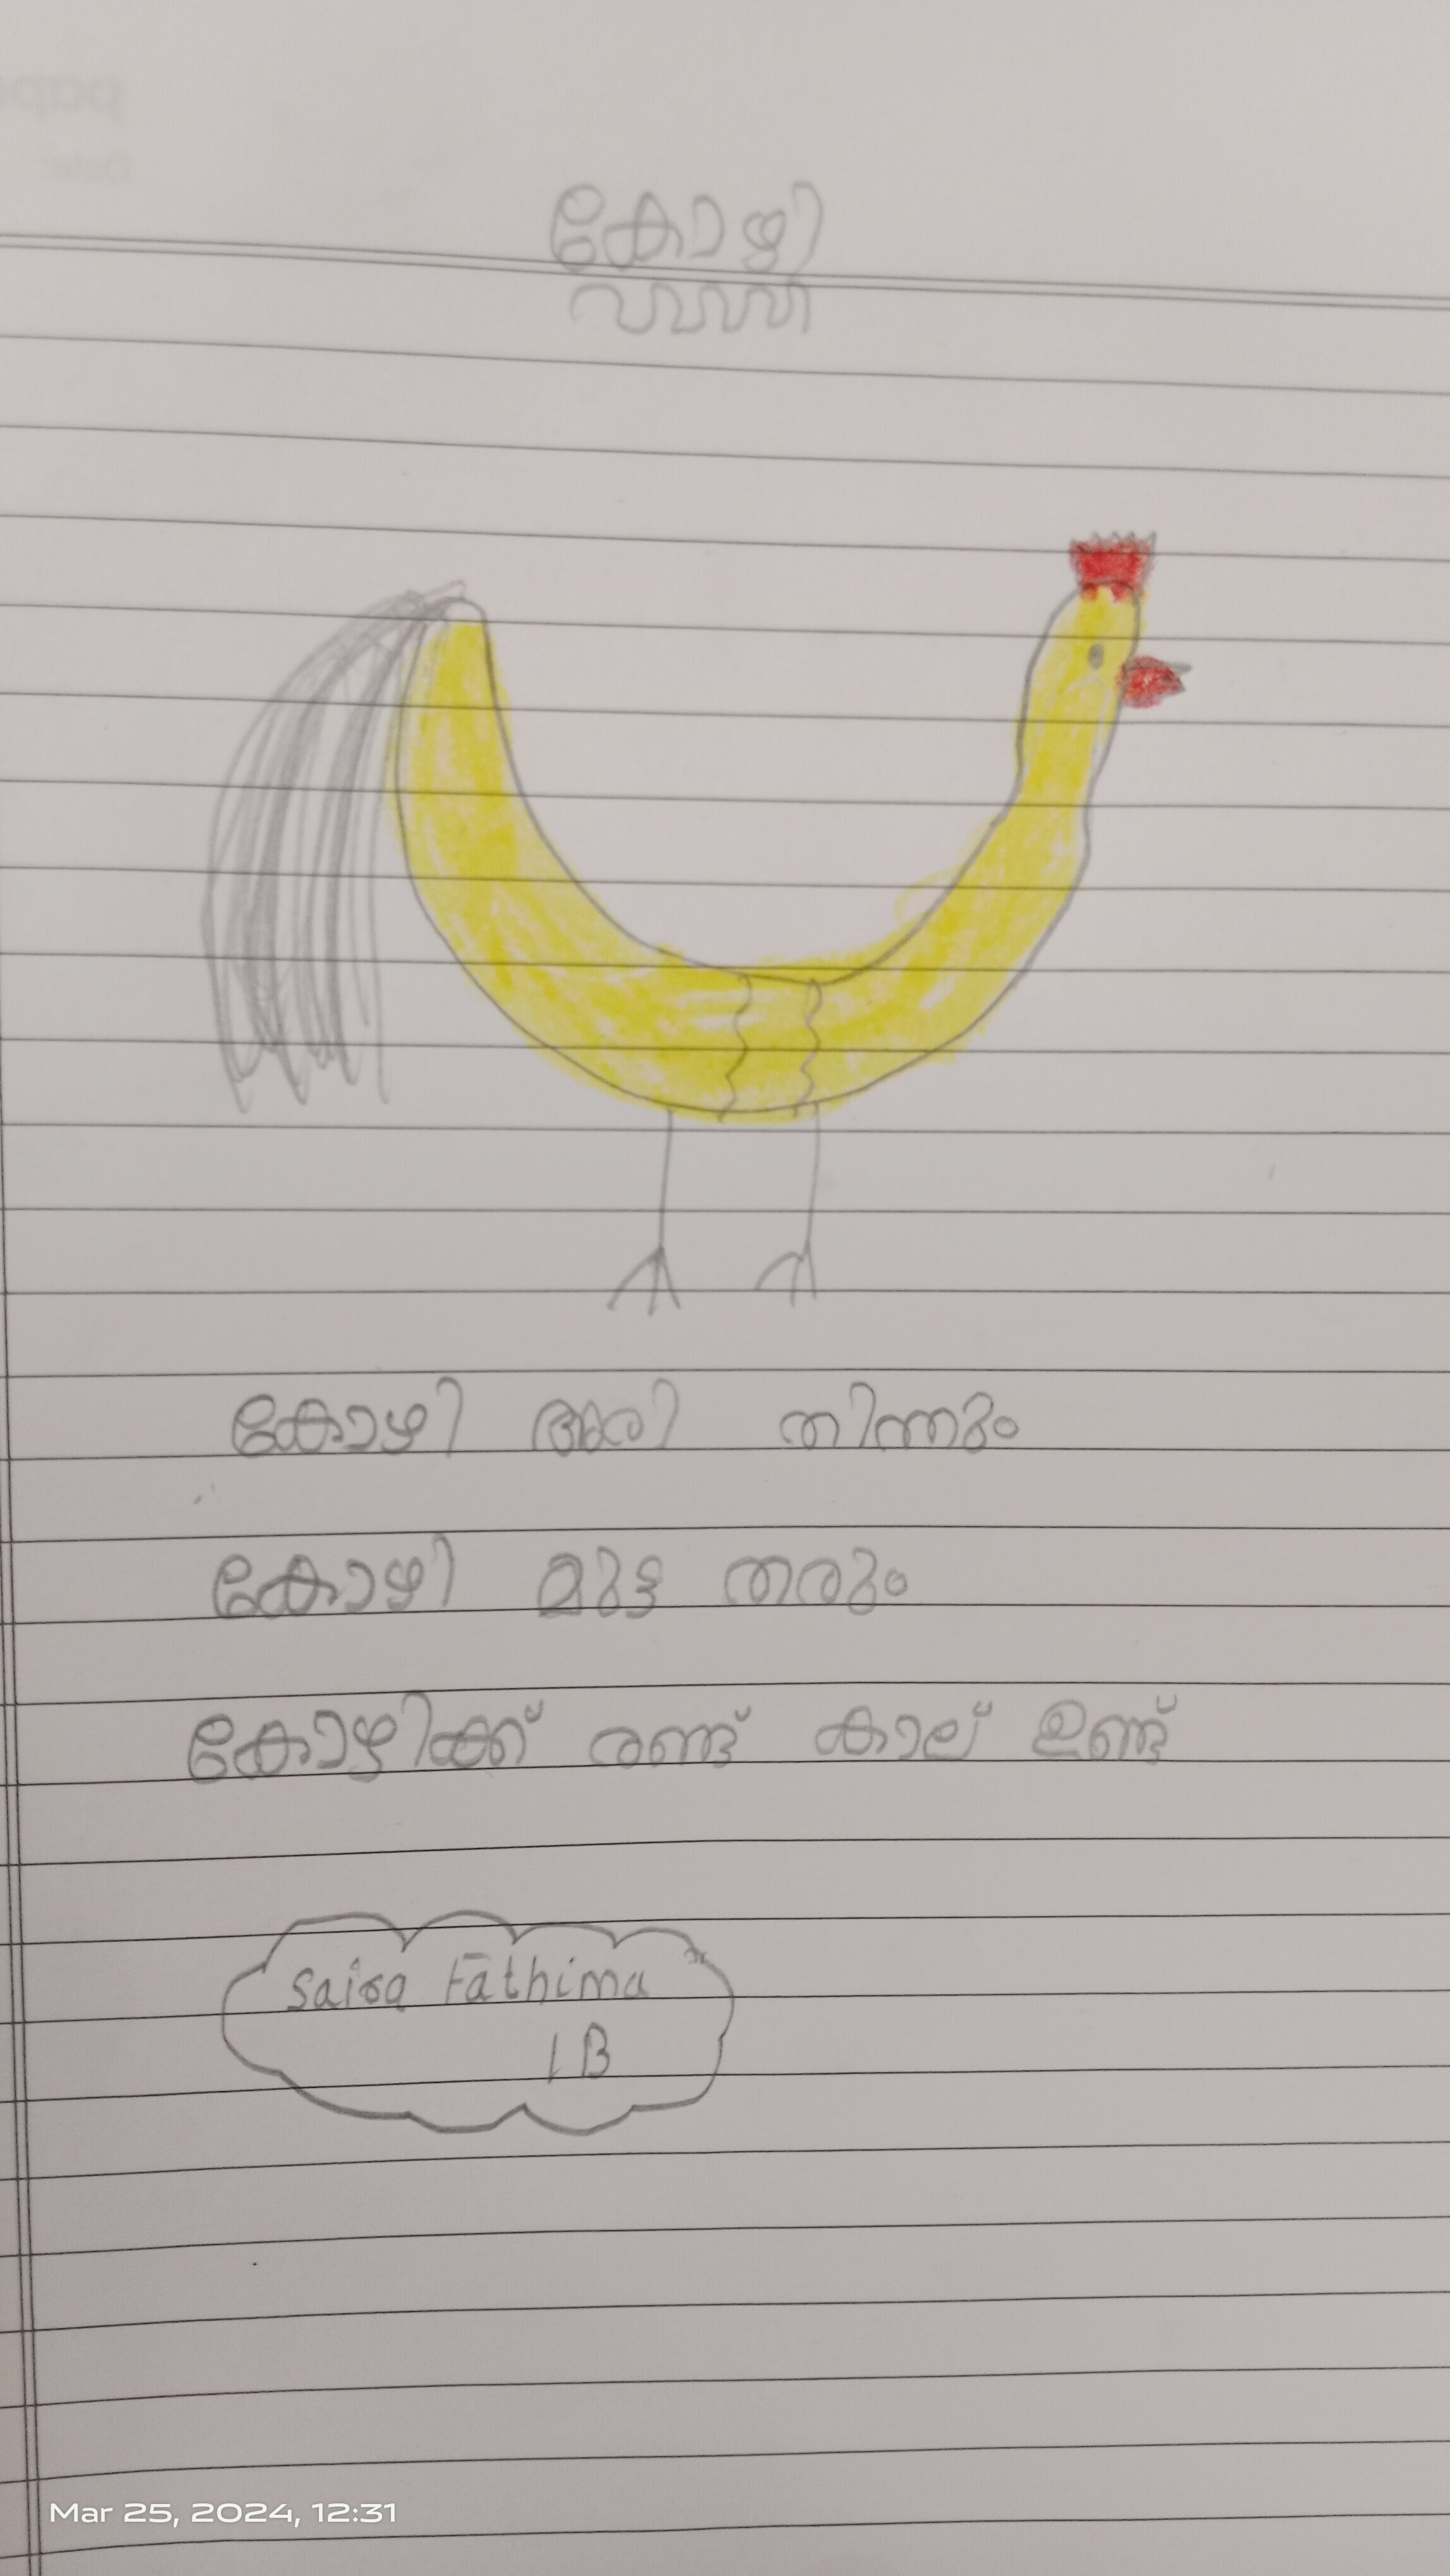 കോഴി
കോഴി അരി തിന്നും
കോഴി മുട്ട തരും
കോഴിക്ക് രണ്ട് കാല് ഉണ്ട്
Fathima
1 B
Mar 25, 2024, 12:31